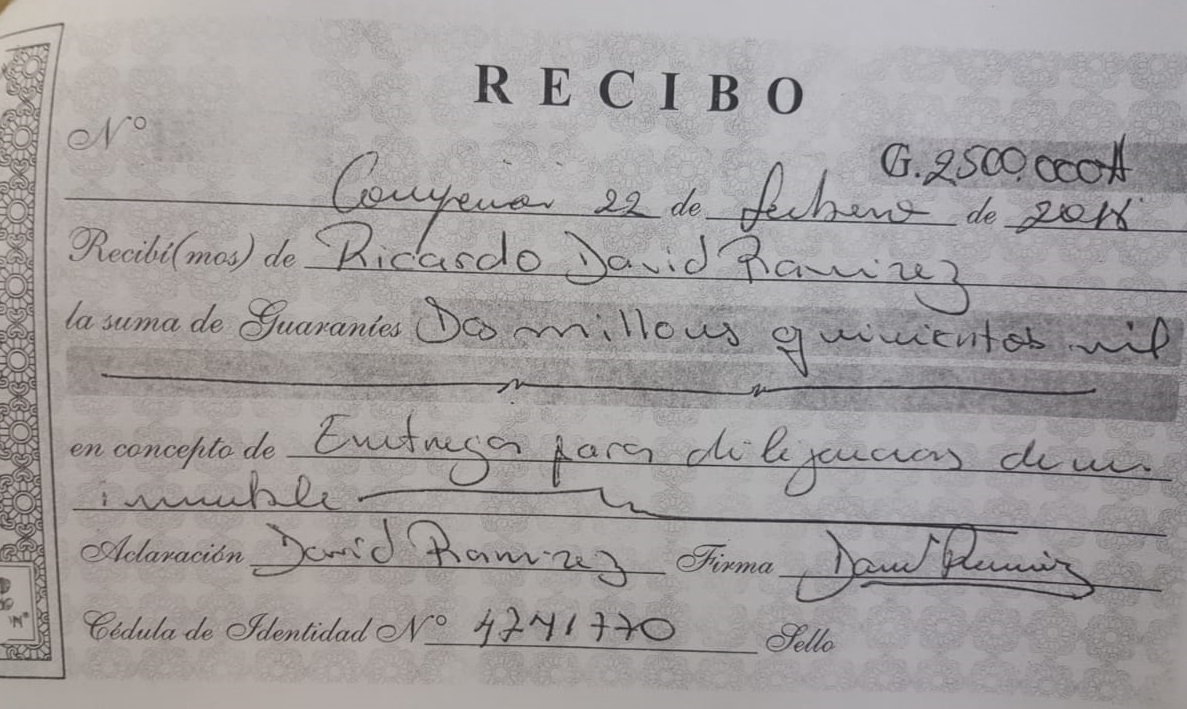 RECIBO
Nº
G. 2500.000
22 de febrero de
Recibí(mos) de Ricardo David Ramirez
la suma de Guaraníes Dos millones quinientos mil
en concepto de Entrega para diligencias de un
inmueble
Aclaración David Ramirez Firma David Ramirez
Cédula de Identidad Nº 4741770 Sello